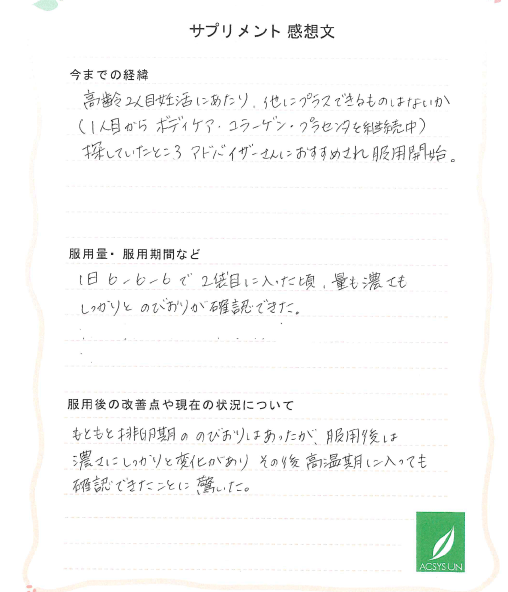 サプリメント 感想文
今までの経緯
高齢2人目妊活にあたり、他にプラスできるものはないか
（1人目から ボディケア・コラーゲン・プラセンタを継続中）
探していたところ アドバイザーさんにおすすめされ 服用開始。
服用量・服用期間など
1日 6-6-6 で 2袋目に入った頃、量も濃さも
しっかりと のびおりが確認できた。
服用後の改善点や現在の状況について
もともと排卵期の のびおりはあったが、服用後は
濃さにしっかりと変化があり その後 高温期に入っても
確認できたことに 驚いた。
ACSYS UN